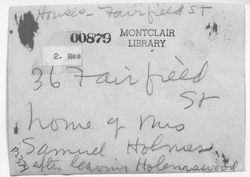 Houses - Fairfield St
00879
MONTCLAIR
LIBRARY
2. Res
36 Fairfield
St
home of Mrs
Samuel Holmes
after leaving Holmeswood